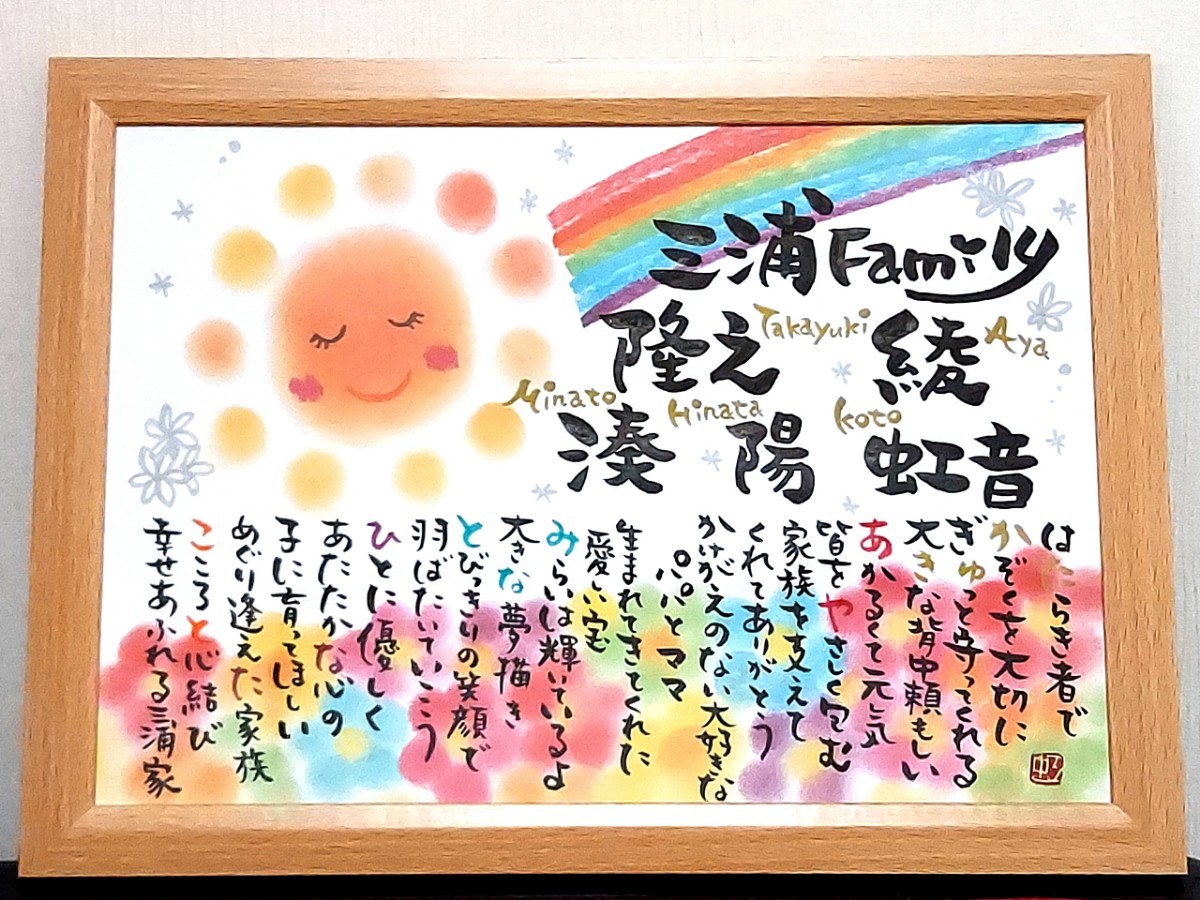 三浦Family
隆之 Takayuki 綾 Aya
Minato Hinata Koto
湊 陽 虹音
はたらき者で
かぞくを大切に
ぎゅっと守ってくれる
大きな背中頼もしい
あかるくて元気
皆をやさしく包む
家族を支えて
くれてありがとう
かけがえのない大好きな
パパとママ
生まれてきてくれた
愛しい宝
みらいは輝いているよ
大きな夢描き
とびっきりの笑顔で
羽ばたいていこう
ひとに優しく
あたたかな心の
子に育ってほしい
めぐり逢えた家族
こころと心結び
幸せあふれる三浦家